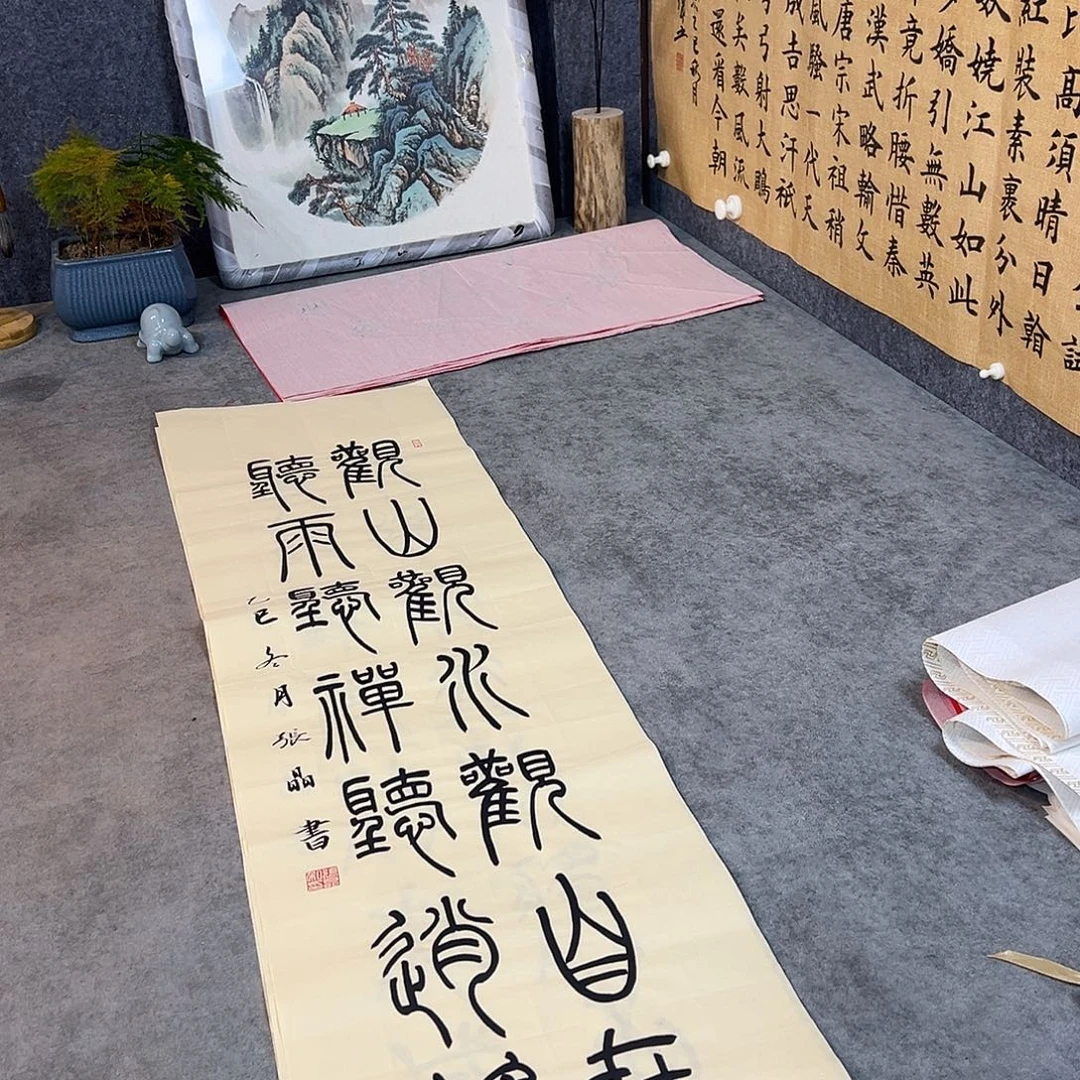 觀山觀水觀自在
聽雨聽禪聽逍
乙巳冬月張晶書
試
比高須晴日
紅裝素裹分外
嬈江山如此
嬌引無數英
竟折腰惜秦
漢武略輸文
唐宗宋祖稍
風騷一代天
成吉思汗祇
弓射大鵰
矣數風流
還看今朝